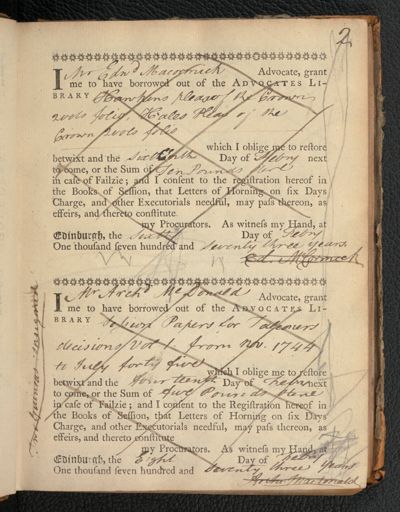 2
I Mr Edwd Macormick Advocate, grant
me to have borrowed out of the ADVOCATES LI-
BRARY Hawkins pleas of the Crown
2 vols folio Hales Pleas of the
Crown 2 vols folio
which I oblige me to restore
betwixt and the Day of Febry next
to come, or the Sum of Ten Pounds Sterl
in case of Failzie; and I consent to the registration hereof in
the Books of Session, that Letters of Horning on six Days
Charge, and other Executorials needful, may pass thereon, as
effeirs, and thereto constitute
my Procurators. As witness my Hand, at
Edinburgh, the Day of Febry
One thousand seven hundred and seventy three years
Ed. McCormick
I Mr Archd McDonald Advocate, grant
me to have borrowed out of the ADVOCATES LI-
BRARY Session Papers for Falconers
decisions Vol 1 from Nov. 1744
to July forty five
which I oblige me to restore
betwixt and the fourteenth Day of Febry next
to come, or the Sum of five Pounds Sterl
in case of Failzie; and I consent to the Registration hereof in
the Books of Session, that Letters of Horning on six Days
Charge, and other Executorials needful, may pass thereon, as
effeirs, and thereto constitute
my Procurators. As witness my Hand, at
Edinburgh, the Eight Day of Febry
One thousand seven hundred and seventy three years
Macdonald